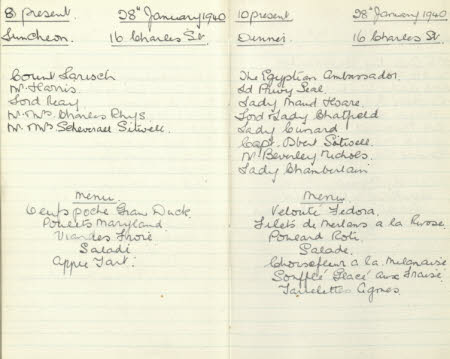 8 present. 28th January 1940
Luncheon. 16 Charles St.
Count Larisch
Mr Harris
Lord Reay
Mr. Mrs Charles Rhys
Mr. Mrs Sacheverell Sitwell.
Menu
Oeufs poche Gran Duck
Poulets Maryland
Viandes Froid
Salade
Apple Tart.
10 present 28th January 1940
Dinner. 16 Charles St.
The Egyptian Ambassador.
Ld Privy Seal
Lady Maud Hoare.
Lord & Lady Chatfield
Lady Cunard
Capt. Osbert Sitwell.
Mr Beverley Nichols.
Lady Chamberlain
Menu
Velouté Fedora,
Filets de Merlans a la Russe.
Poulard Roti.
Salade.
Choisefleur a la Milanaise
Soufflé Glacé aux Fraise.
Tartelettes Cignes.